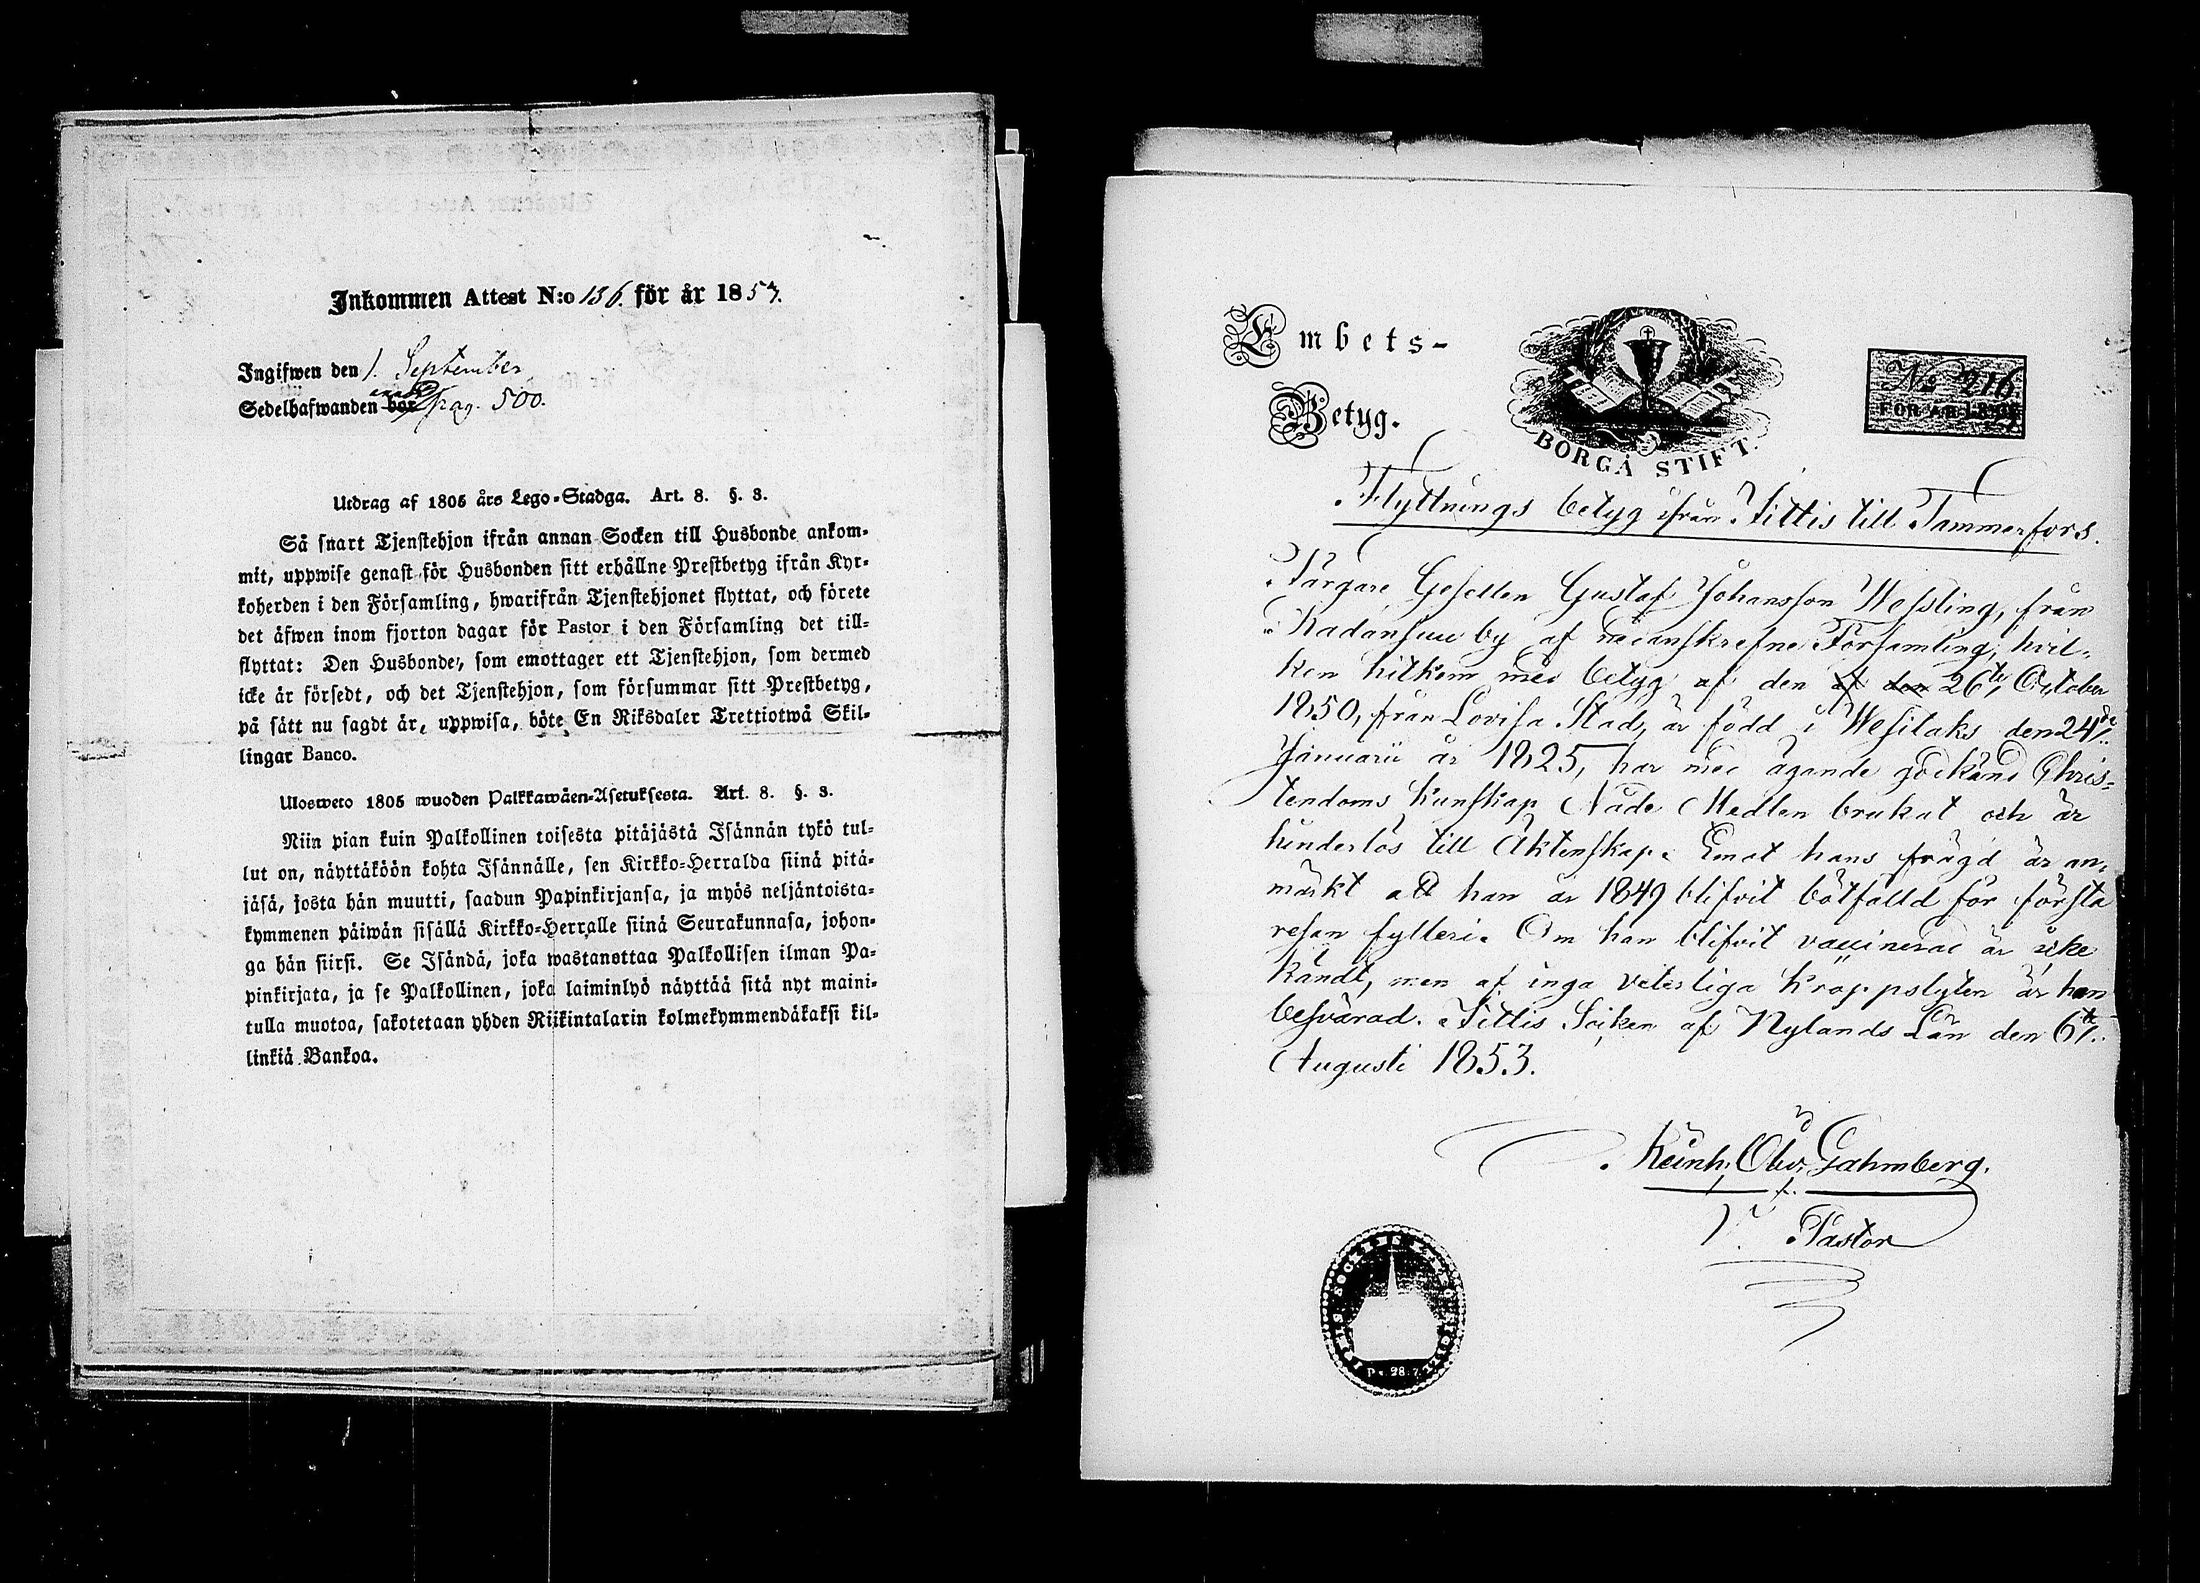 Inkommen Attest N:o 136. för år 1853.
Ingifwen den 1. September
Sedelhafwanden bor pag. 500.
Utdrag af 1805 års Lego-Stadga. Art. 8. §. 3.
Så snart Tjenstehjon ifrån annan Socken till Husbonde ankom-
mit, uppwise genast för Husbonden sitt erhållne Prestbetyg ifrån Kyr-
koherden i den Församling, hwarifrån Tjenstehjonet flyttat, och förete
det äfwen inom fjorton dagar för Pastor i den Församling det till-
flyttat: Den Husbonde, som emottager ett Tjenstehjon, som dermed
icke är försedt, och det Tjenstehjon, som försummar sitt Prestbetyg,
på sätt nu sagdt är, uppwisa, böte En Riksdaler Trettiotwå Skil-
lingar Banco.
Ulosweto 1805 wuoden Palkkawäen-Asetuksesta. Art. 8. §. 3.
Niin pian kuin Palkollinen toisesta pitäjästä Isännän tykö tul-
lut on, näyttäköön kohta Isännälle, sen Kirkko-Herralda siinä pitä-
jäsä, josta hän muutti, saadun Papinkirjansa, ja myös neljäntoista-
kymmenen päiwän sisällä Kirkko-Herralle siinä Seurakunnasa, johon-
ga hän siirsi. Se Isändä, joka wastanottaa Palkollisen ilman Pa-
pinkirjata, ja se Palkollinen, joka laiminlyö näyttää sitä nyt maini-
tulla muotoa, sakotetaan yhden Riikintalarin kolmekymmendäkaksi kil-
linkiä Bankoa.
Embets-
Betyg.
BORGÅ STIFT.
No 216
FÖR ÅR 18
Flyttnings betyg ifrån Fittis till Tammerfors.
Färgare Gesellen Gustaf Johansson Wessling, från
Radansuu by af nedanskrefne Församling, hvil-
ken hitkom med betyg af den af den 26te October
1850, från Lovisa Stad, är född i Wesilaks den 24de
Januarii år 1825, har med ägande godkänd Chris-
tendoms kunskap Nåde Medlen brukat och är
hinderlös till Äktenskap. Emot hans frägd är an-
märkt att han år 1849 blifvit bötfälld för första
resan fylleri. Om han blifvit vaccinerad är icke
kändt, men af inga veterliga kroppslyten är han
besvärad. Fittis Socken af Nylands Län den 6te
Augusti 1853.
Reinh. Olw. Gahmberg.
V. Pastor
P. 28.